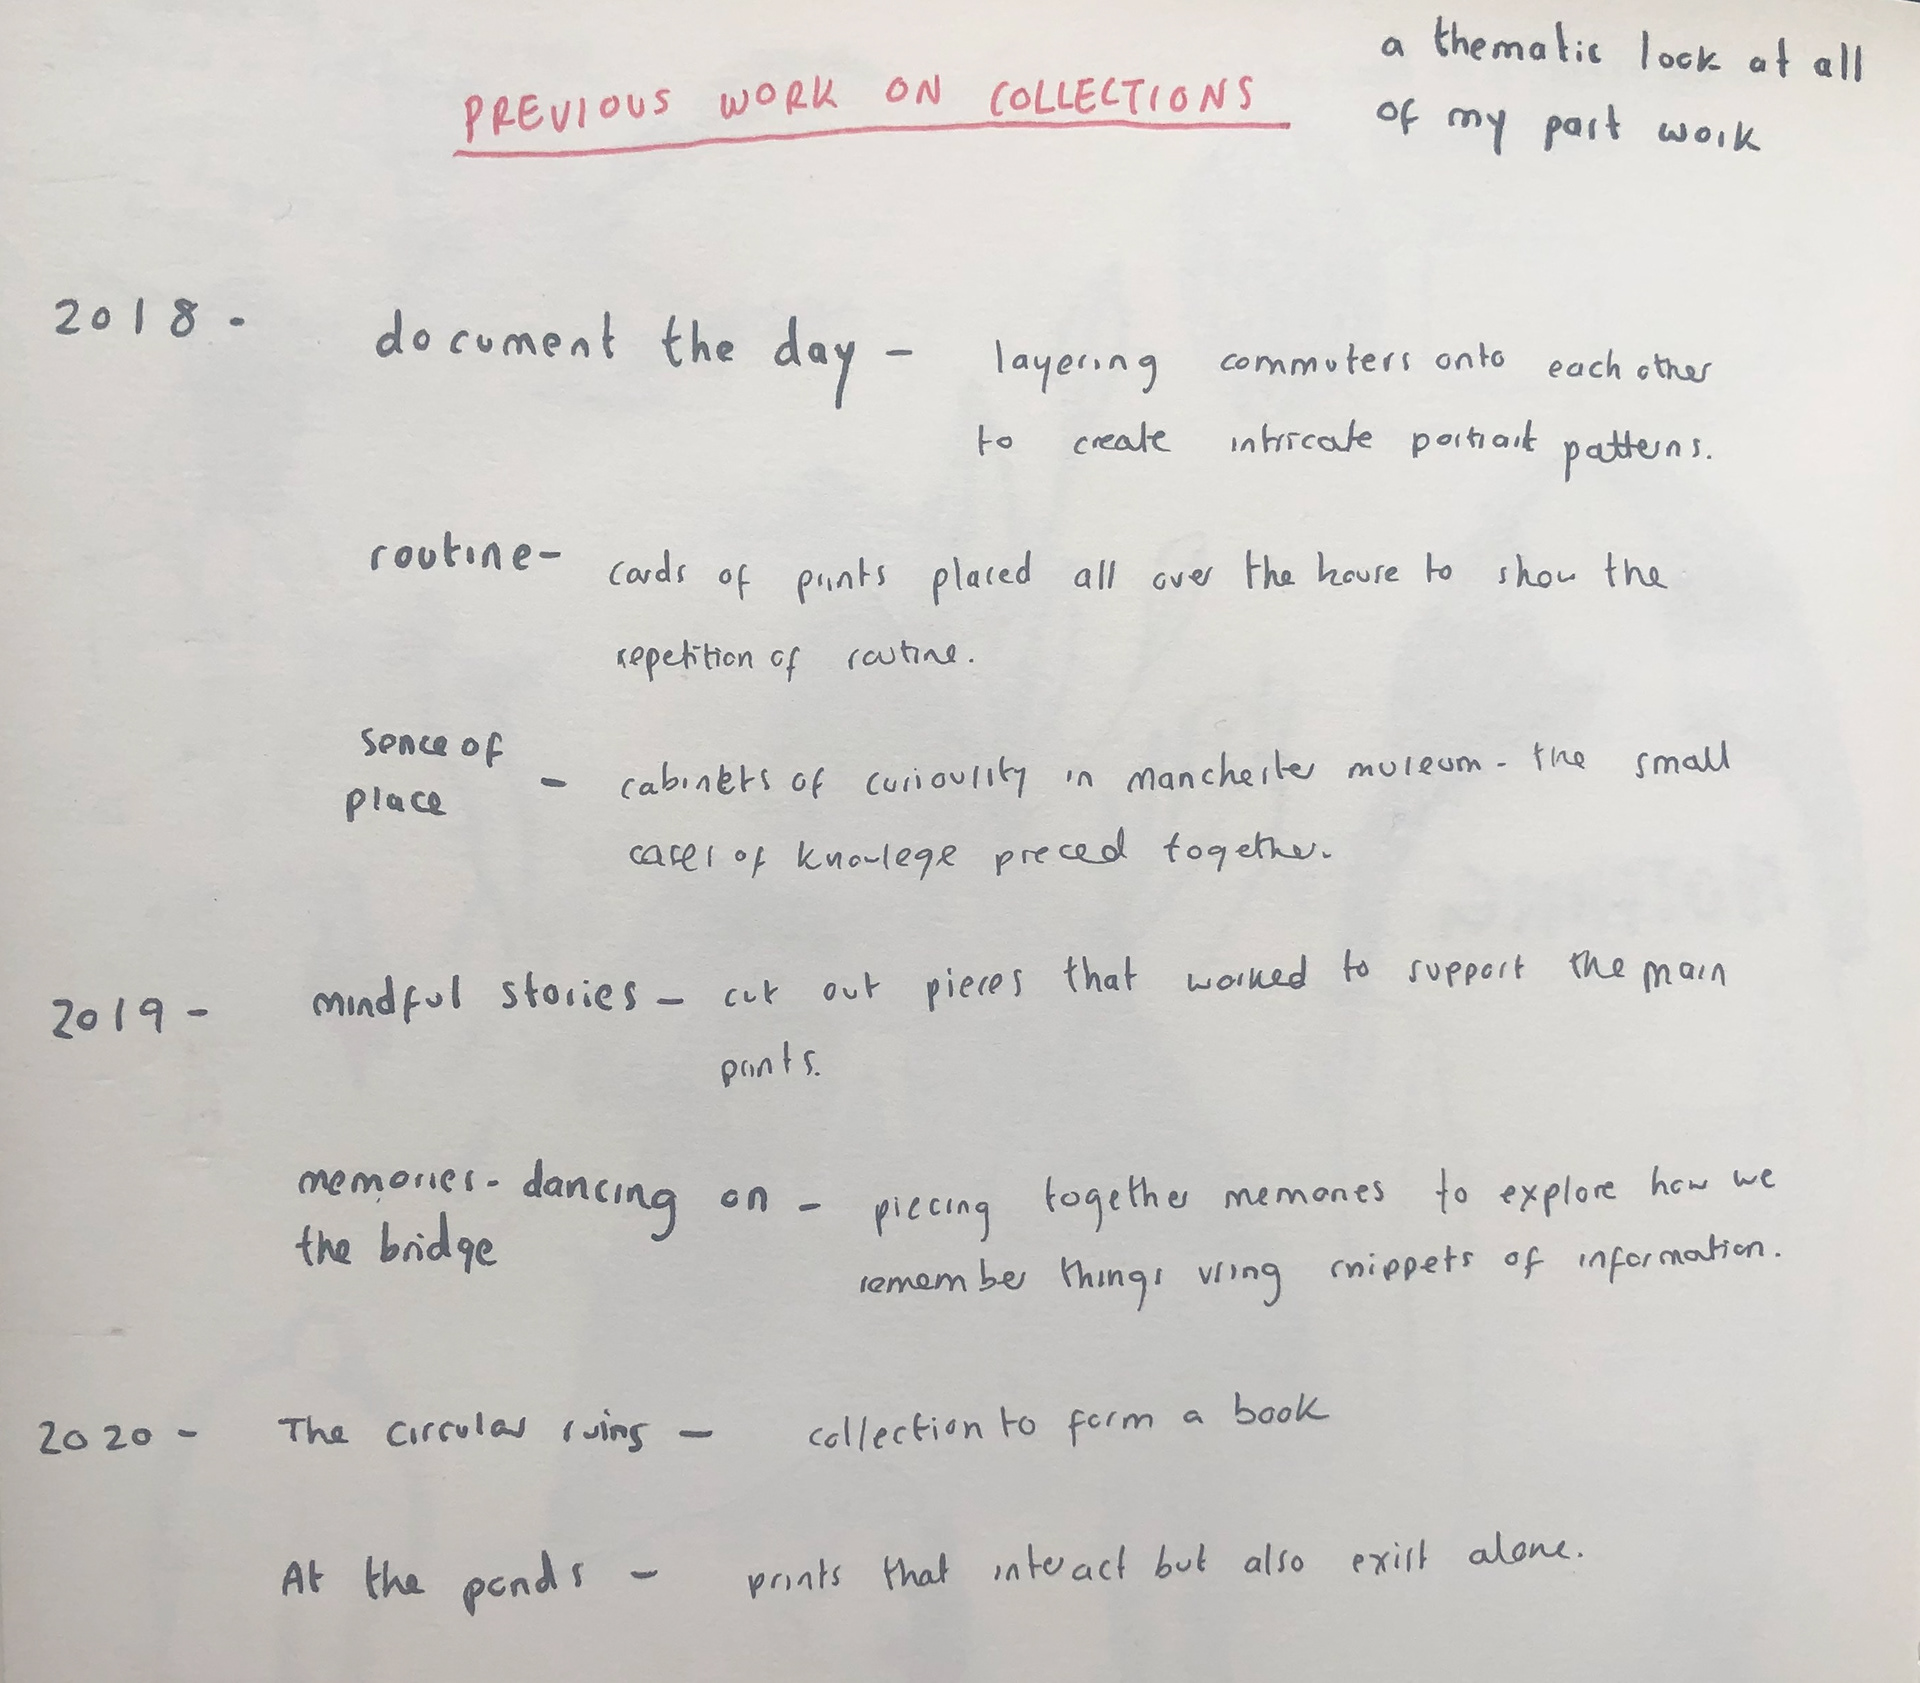 PREVIOUS WORK ON COLLECTIONS
a thematic look at all
of my past work
2018 -
document the day - layering commuters onto each other
to create intricate portrait patterns.
routine - cards of prints placed all over the house to show the
repetition of routine.
sence of
place - cabinets of curiousity in manchester museum - the small
cases of knowlege pieced together.
2019 - mindful stories - cut out pieces that worked to support the main
prints.
memories - dancing on - piecing together memories to explore how we
the bridge
remember things using snippets of information.
2020 - The circular ruins - collection to form a book
At the ponds - prints that interact but also exist alone.